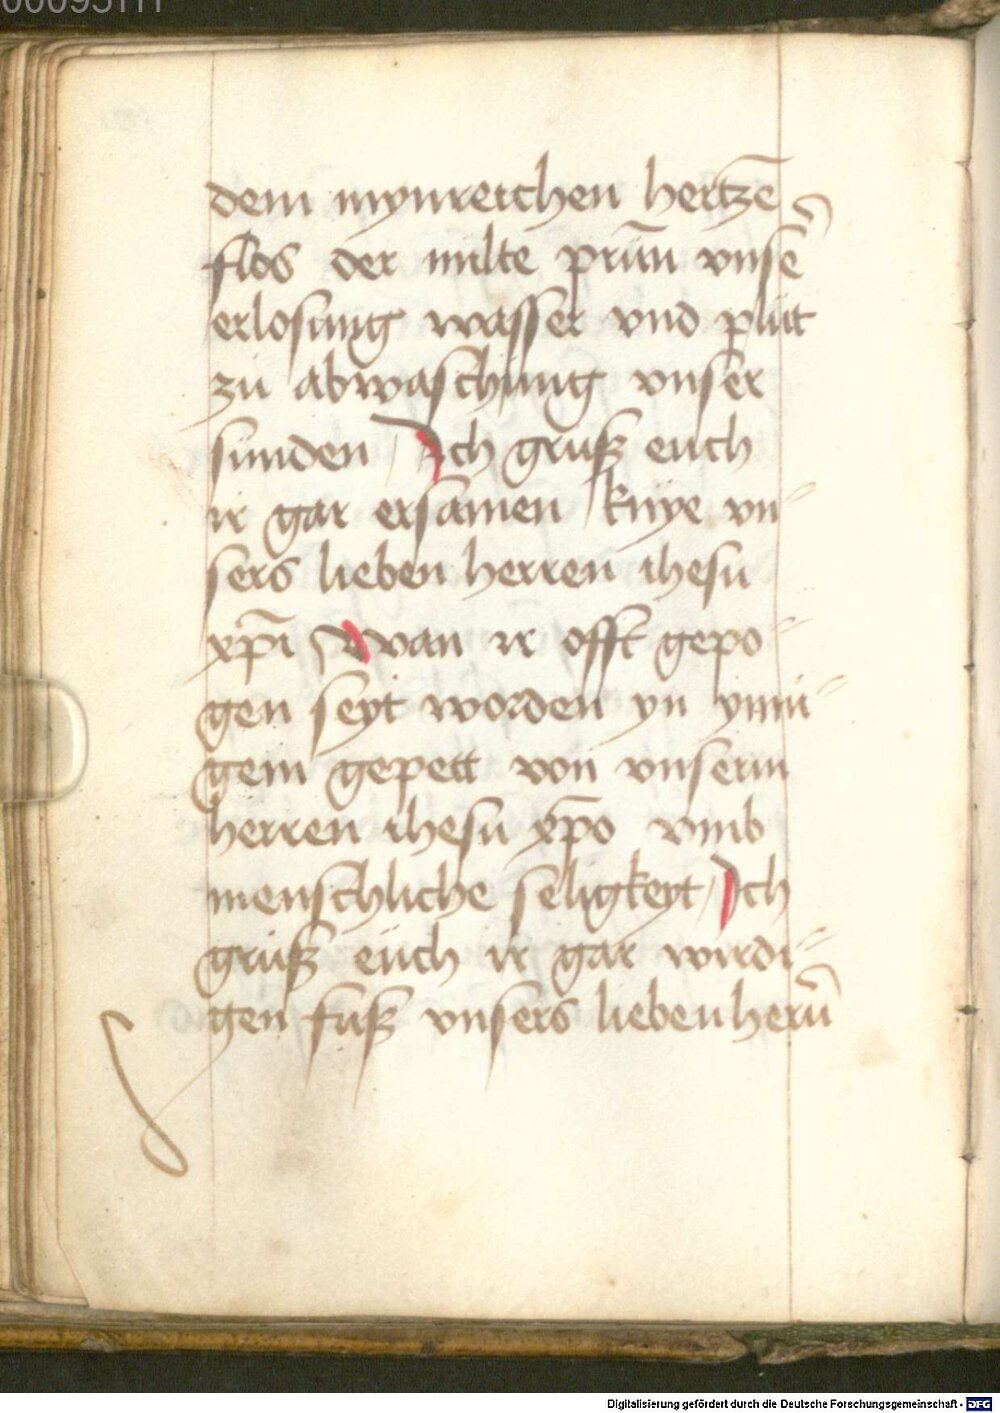 00095111
dem mynreichen hertzē
flos der milte prūn vnsē
erlosung wasser vnd plut
zu abwaschung vnser
sunden Ich gruß euch
ir gar ersamen knye vn
sers lieben herren ihesu
xp̄i Wan ir offt gepo
gen seyt worden yn ynni
gem gepett von vnserm
herren ihesu xp̄o vmb
menschliche seligkeyt / Ich
gruß euch ir gar wirdi
gen fuß vnsers lieben hern̄
Digitalisierung gefördert durch die Deutsche Forschungsgemeinschaft - DFG